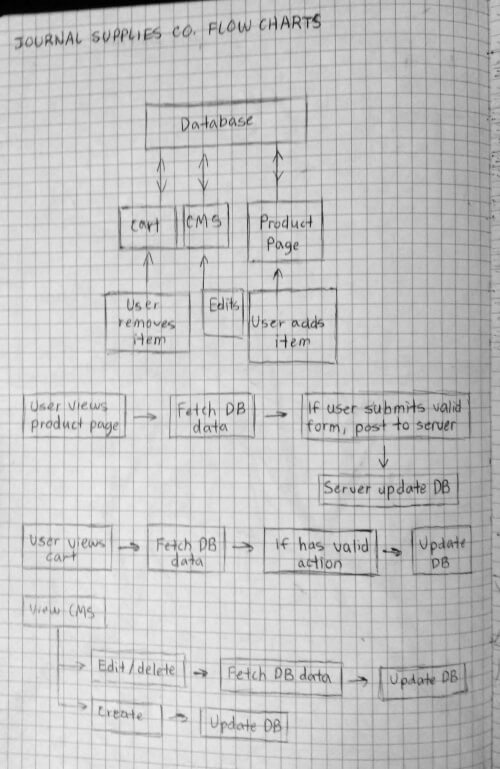 JOURNAL SUPPLIES CO. FLOW CHARTS
Database
Cart
CMS
Product
Page
User
removes
item
Edits
User adds
item
User views
product page
Fetch DB
data
If user submits valid
form, post to server
Server update DB
User views
cart
Fetch DB
data
If has valid
action
Update
DB
View CMS
Edit/delete
Fetch DB data
Update DB
Create
Update DB